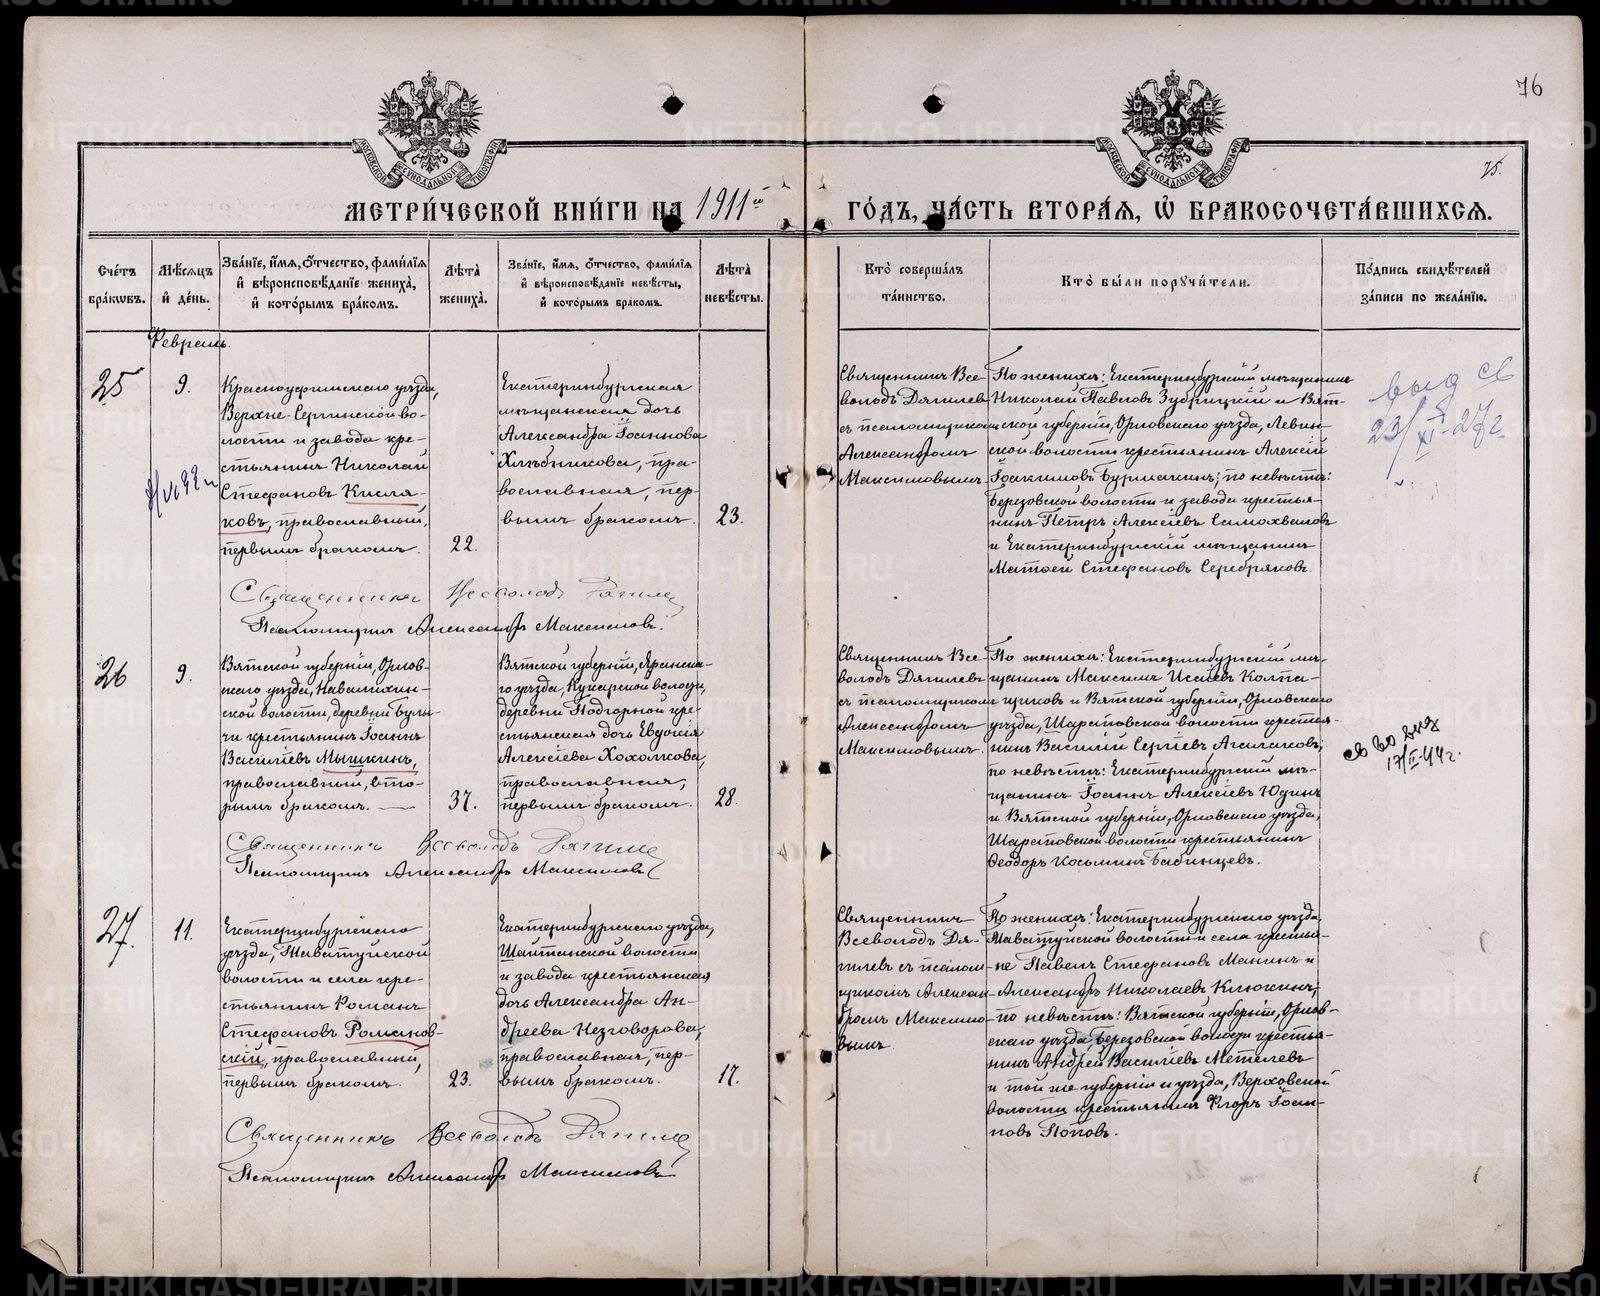 76
75.
МЕТРИ́ЧЕСКОЙ КНИ́ГИ НА 1911й
ГО́ДЪ, ЧА́СТЬ ВТОРА́Я, Ѡ БРАКОСОЧЕТА́ВШИХСЯ.
Сче́тъ бра́ковъ.
Мѣ́сяцъ и́ де́нь.
Зва́нїе, и́мя, ѻ́тчество, фами́лїя
и́ вѣроисповѣ́данїе жениха̀,
и́ кото́рымъ бра́комъ.
Лѣ́та̀ жениха̀.
Зва́нїе, и́мя, ѻ́тчество, фами́лїя
и́ вѣроисповѣ́данїе невѣ́сты,
и́ кото́рымъ бра́комъ.
Лѣ́та̀ невѣ́сты.
Кто̀ соверша́лъ та́инство.
Кто̀ бы́ли порꙋчи́тели.
По́дпись свидѣ́телей
за́писи по жела́нїю.
Февраль.
25
9.
Красноуфимскаго уѣзда,
Верхне-Сергинской во-
лости и завода кре-
стьянинъ Николай
Стефановъ Кисля-
ковъ, православный,
первымъ бракомъ.
22.
Екатеринбургская
мѣщанская дочь
Александра Іоаннова
Хлѣбникова, пра-
вославная, пер-
вымъ бракомъ.
23.
Священникъ Все-
володъ Дягилевъ
съ псаломщикомъ
Александромъ
Максимовымъ.
По женихѣ: Екатеринбургскій мѣщанинъ
Николай Павловъ Зубрицкій и Вят-
ской губерніи, Орловскаго уѣзда, Левин-
ской волости крестьянинъ Алексій
Іоакимовъ Бурмакинъ; по невѣстѣ:
Березовской волости и завода крестья-
нинъ Петръ Алексіевъ Самохваловъ
и Екатеринбургскій мѣщанинъ
Матѳей Стефановъ Серебряковъ.
выд св
23/XI-27г.
Священникъ Всеволодъ Дягилев
Псаломщикъ Александръ Максимовъ.
26
9.
Вятской губерніи, Орлов-
скаго уѣзда,
ской волости, деревни Булы-
чи крестьянинъ Іоаннъ
Василіевъ Мышкинъ,
православный, вто-
рымъ бракомъ.
37.
Вятской губерніи, Яранска-
го уѣзда, Кукарской волости,
деревни Подгорной кре-
стьянская дочь Евдокія
Алексіева Хохолкова,
православная,
первымъ бракомъ.
28.
Священникъ Все-
володъ Дягилевъ
съ псаломщикомъ
Александромъ
Максимовымъ.
По женихѣ: Екатеринбургскій мѣ-
щанинъ Максимъ Исаіевъ Колпа-
щиковъ и Вятской губерніи, Орловскаго
уѣзда, Шараповской волости крестья-
нинъ Василій Сергіевъ Агалаковъ;
по невѣстѣ: Екатеринбургскій мѣ-
щанинъ Іоаннъ Алексіевъ Юдинъ
и Вятской губерніи, Орловскаго уѣзда,
Шараповской волости крестьянинъ
Ѳеодоръ Косьминъ Бабинцевъ.
св во выд
17/II-44г.
Священникъ Всеволодъ Дягилев
Псаломщикъ Александръ Максимовъ
27.
11.
Екатеринбургскаго
уѣзда, Таватуйской
волости и села кре-
стьянинъ Романъ
Стефановъ Романов-
скій, православный,
первымъ бракомъ.
23.
Екатеринбургскаго уѣзда,
Шайтанской волости
и завода крестьянская
дочь Александра Ан-
дреева Незговорова,
православная, пер-
вымъ бракомъ.
17.
Священникъ
Всеволодъ Дя-
гилевъ съ псалом-
щикомъ Алексан-
дромъ Максимо-
вымъ.
По женихѣ: Екатеринбургскаго уѣзда,
Таватуйской волости и села крестья-
не Павелъ Стефановъ Манинъ и
Александръ Николаевъ Клюкинъ;
по невѣстѣ: Вятской губерніи, Орлов-
скаго уѣзда, Березовской волости крестья-
нинъ Андрей Василіевъ Метелевъ
и той же губерніи и уѣзда, Верховской
волости крестьянинъ Егоръ Іоан-
новъ Поповъ.
Священникъ Всеволодъ Дягилев
Псаломщикъ Александръ Максимовъ
METRIKI.GASO-URAL.RU